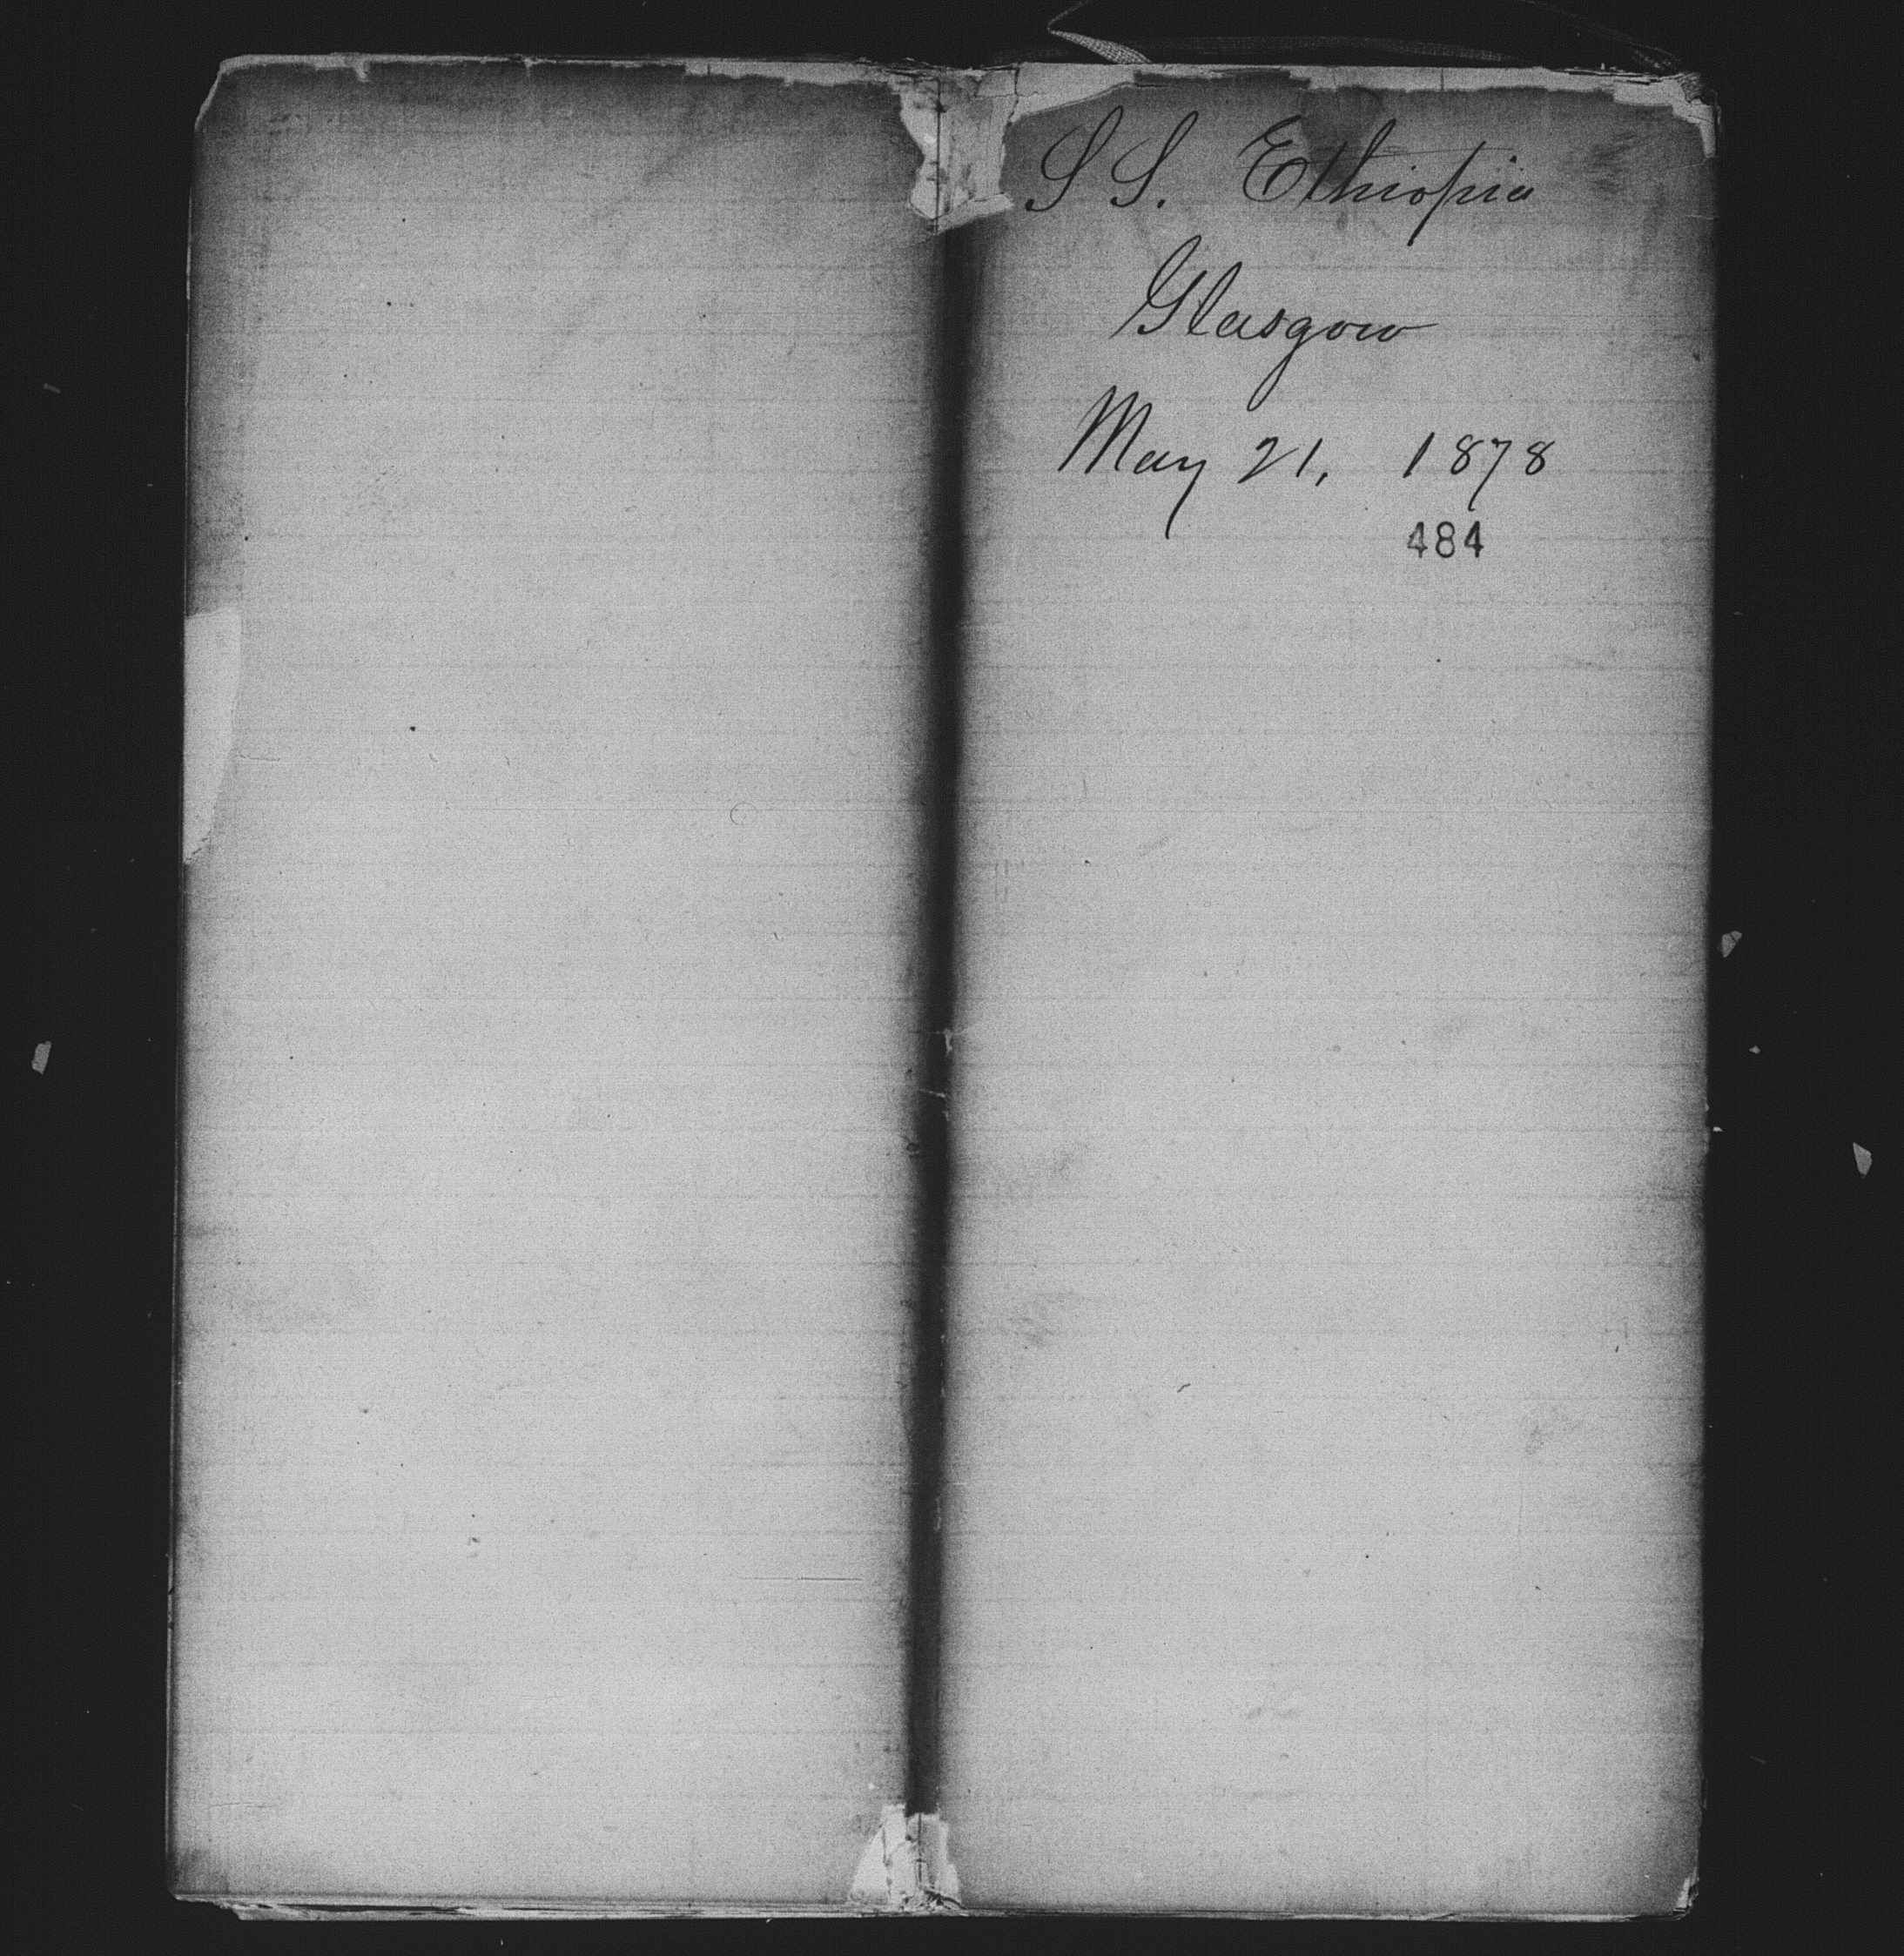 S S. Ethiopia
Glasgow
May 21, 1878
484